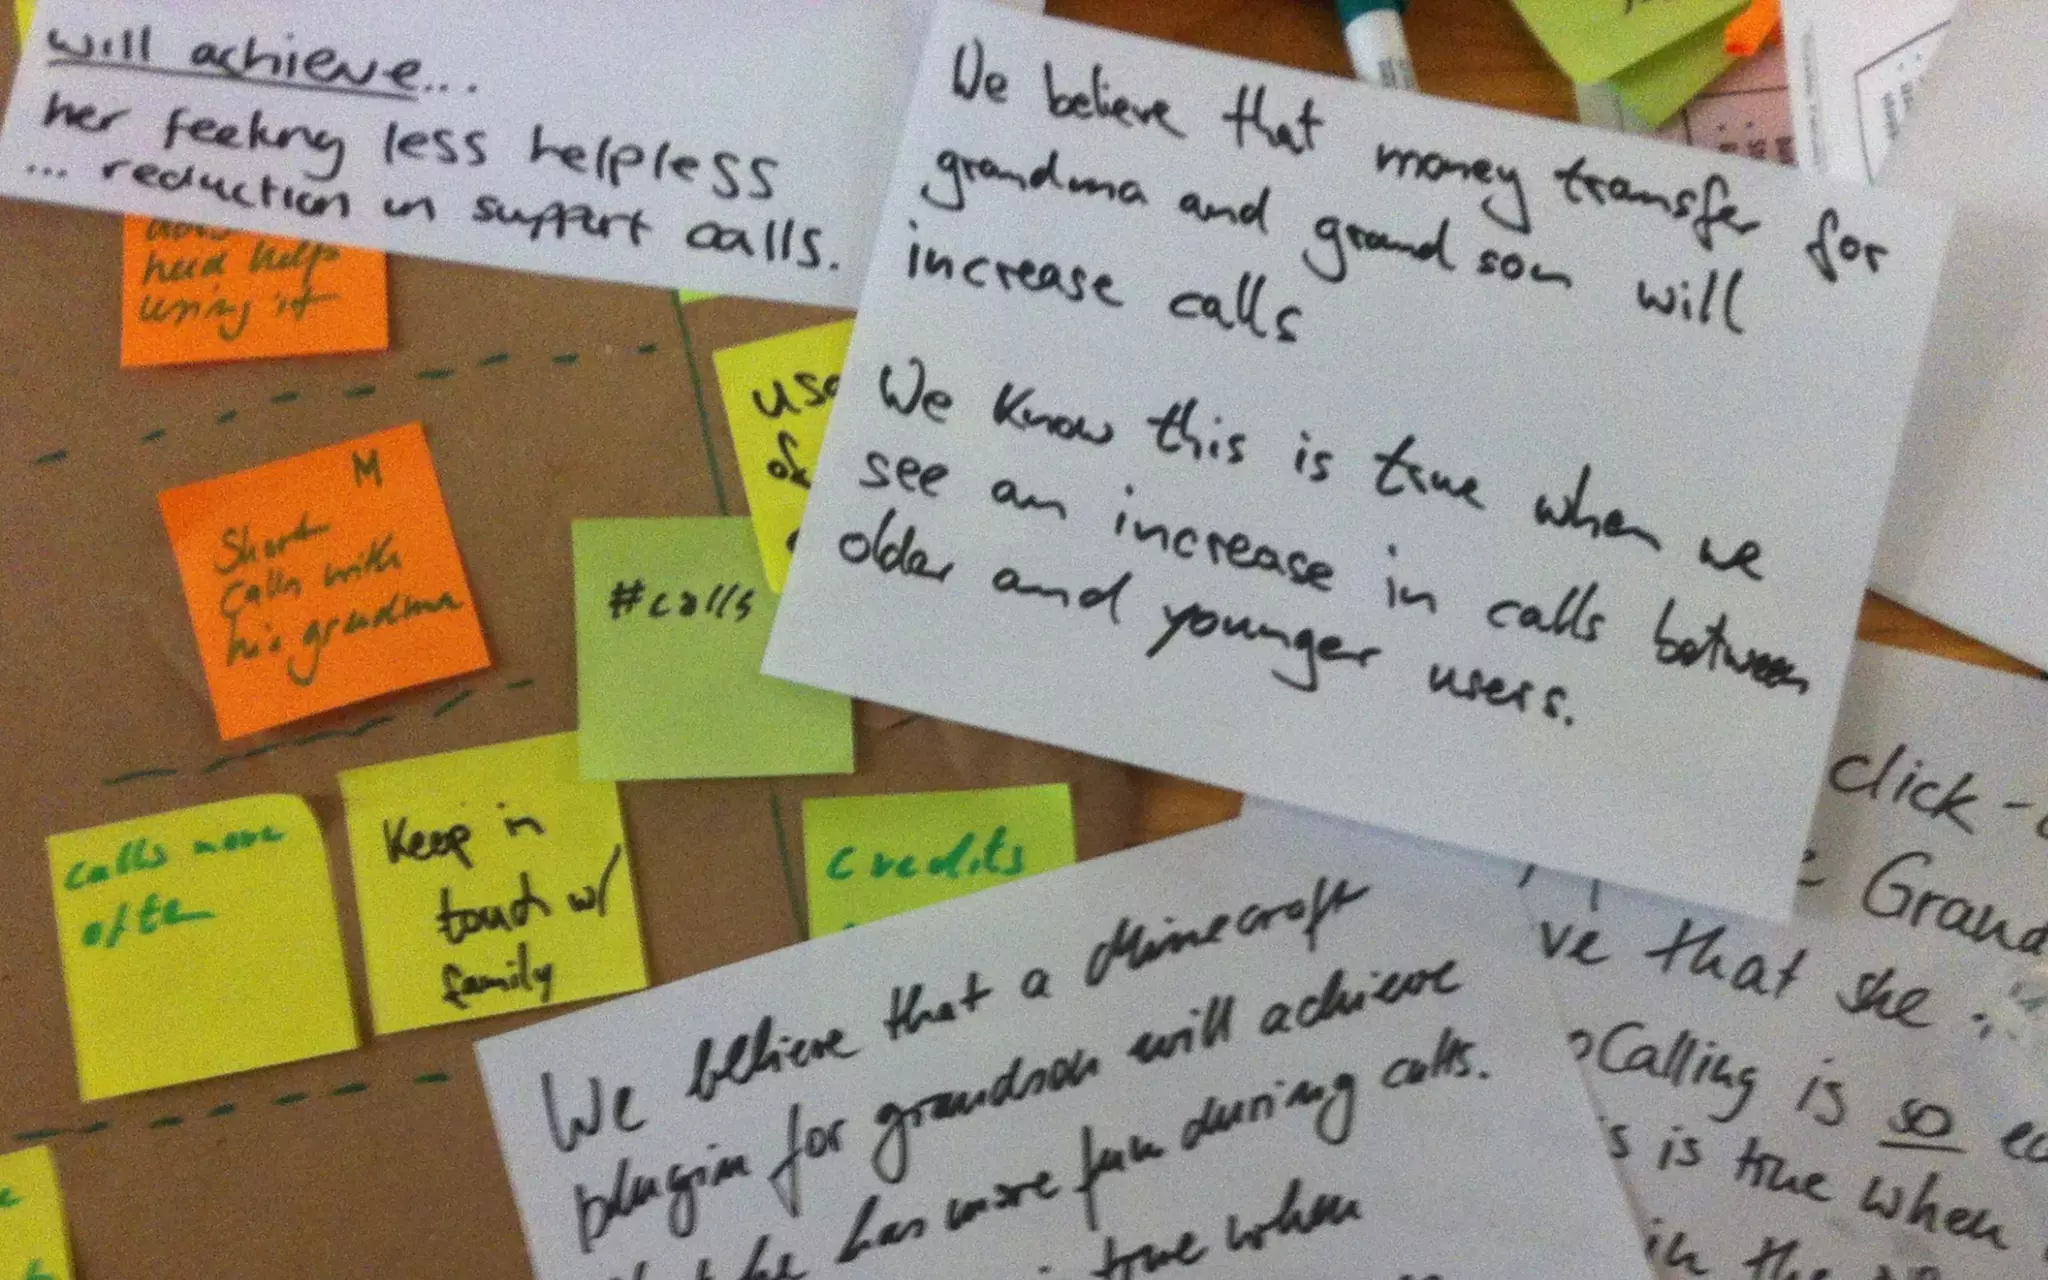 will achieve...
her feeling less helpless
... reduction in support calls.
need help
using it
M
Short
calls with
his grandma
#calls
calls more
Keep in
touch w/
family
credits
We believe that money transfer for
grandma and grandson will
increase calls
We know this is true when we
see an increase in calls between
older and younger users.
We believe that a Minecraft
plugin for grandson will achieve
he has more fun during calls.
true when
click-
Grand
ve that she
Calling is so
s is true when
in the